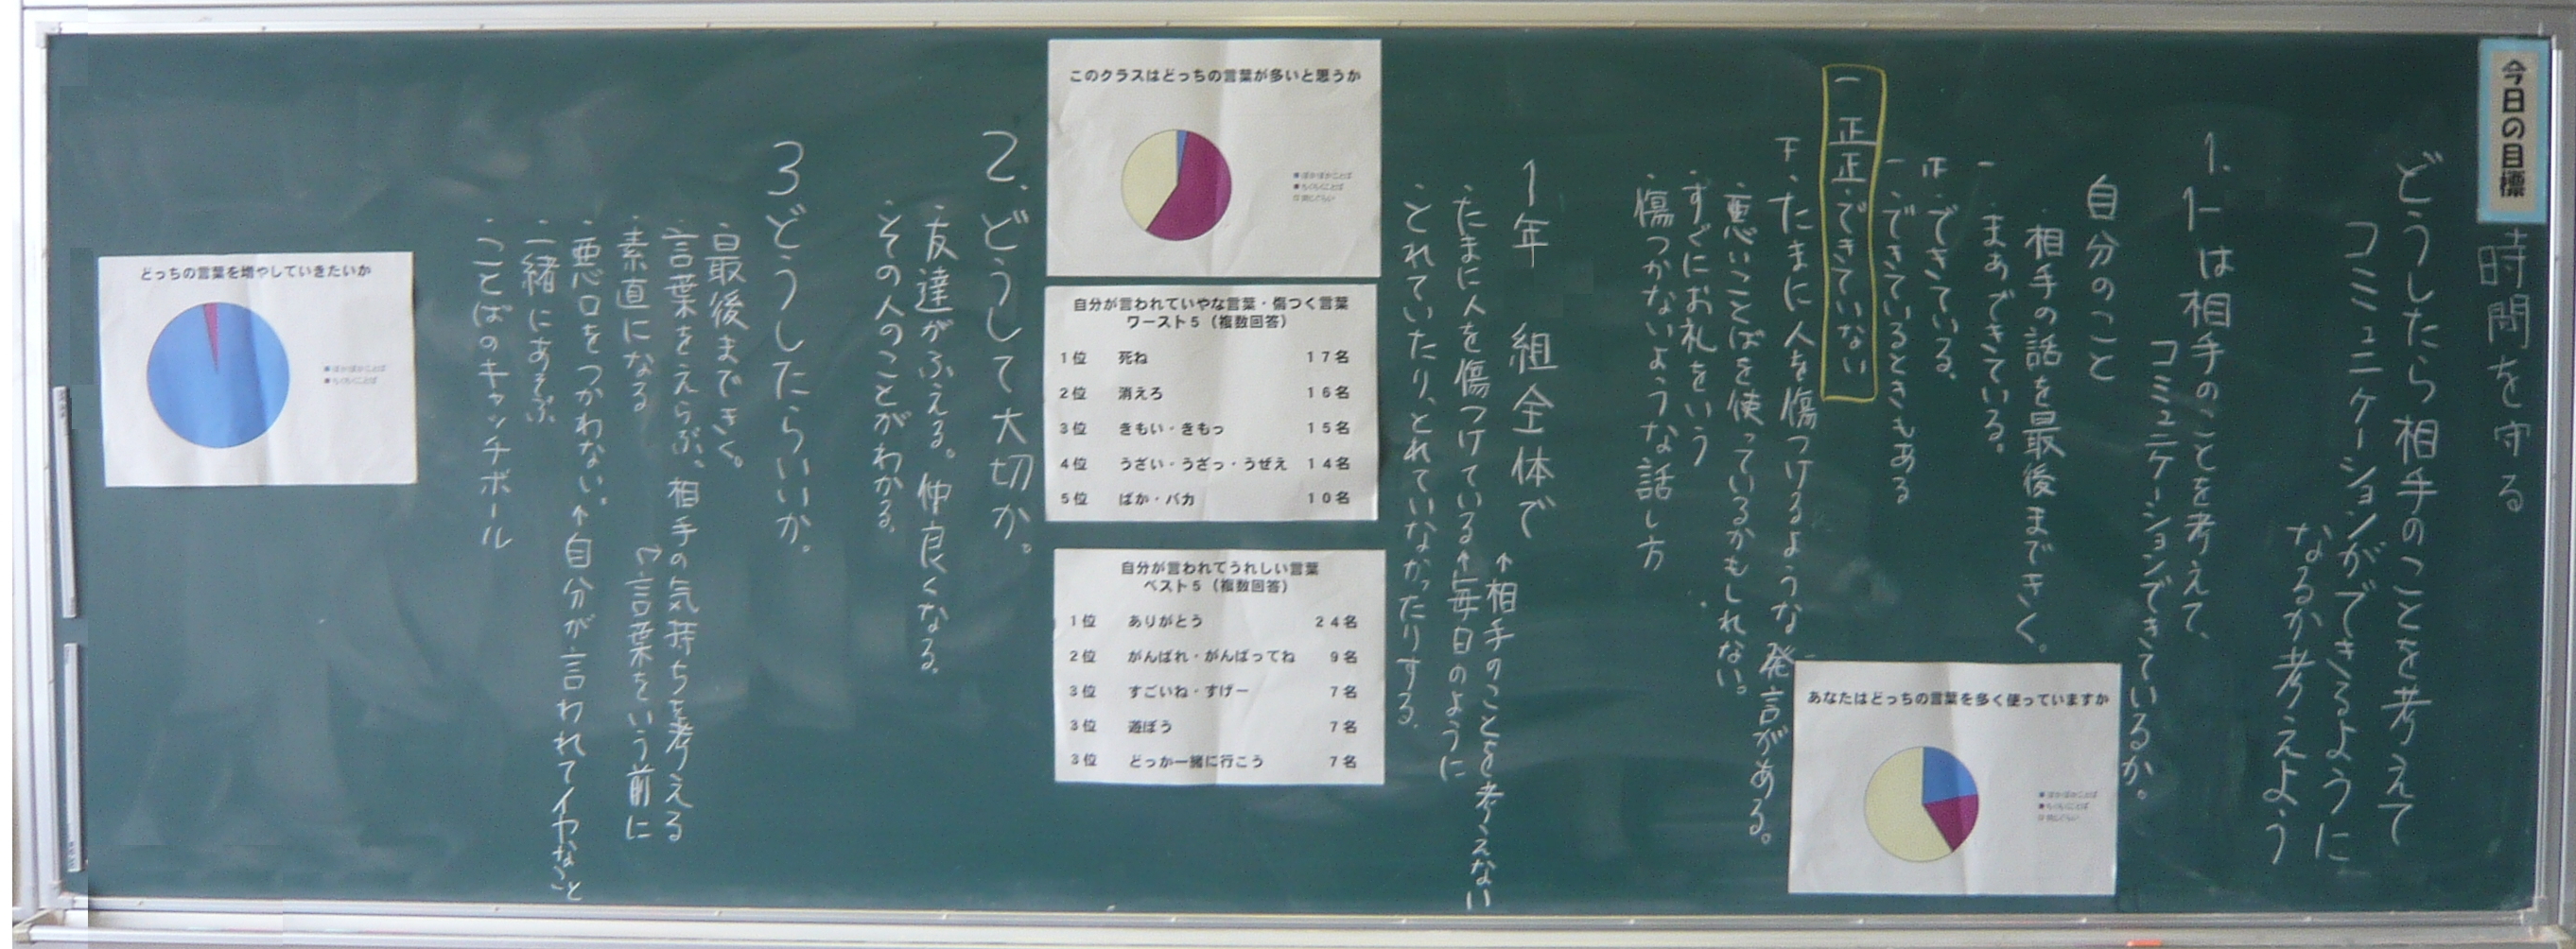 今日の目標
時間を守る
どうしたら相手のことを考えて
コミュニケーションができるように
なるか考えよう
1.
は相手のことを考えて、
コミュニケーションできているか。
自分のこと
・相手の話を最後まできく。
一・まあできている。
正・できている。
一・できているときもある
一正正・できていない
下・たまに人を傷つけるような発言がある。
・悪いことばを使っているかもしれない。
・すぐにお礼をいう
・傷つかないような話し方
あなたはどっちの言葉を多く使っていますか
ぽかぽかことば
ちくちくことば
同じぐらい
1年 組全体で
↑相手のことを考えない
・たまに人を傷つけている↑毎日のように
・とれていたり、とれていなかったりする。
このクラスはどっちの言葉が多いと思うか
ぽかぽかことば
ちくちくことば
同じぐらい
自分が言われていやな言葉・傷つく言葉
ワースト5（複数回答）
1位 死ね 17名
2位 消えろ 16名
3位 きもい・きもっ 15名
4位 うざい・うざっ・うぜえ 14名
5位 ばか・バカ 10名
自分が言われてうれしい言葉
ベスト5（複数回答）
1位 ありがとう 24名
2位 がんばれ・がんばってね 9名
3位 すごいね・すげー 7名
3位 遊ぼう 7名
3位 どっか一緒に行こう 7名
2.どうして大切か。
・友達がふえる。仲良くなる。
・その人のことがわかる。
3どうしたらいいか。
・最後まできく。
・言葉をえらぶ。相手の気持ちを考える
・素直になる
言葉をいう前に
・悪口をつかわない。↑自分が言われてイヤなこと
・一緒にあそぶ
・ことばのキャッチボール
どっちの言葉を増やしていきたいか
ぽかぽかことば
ちくちくことば